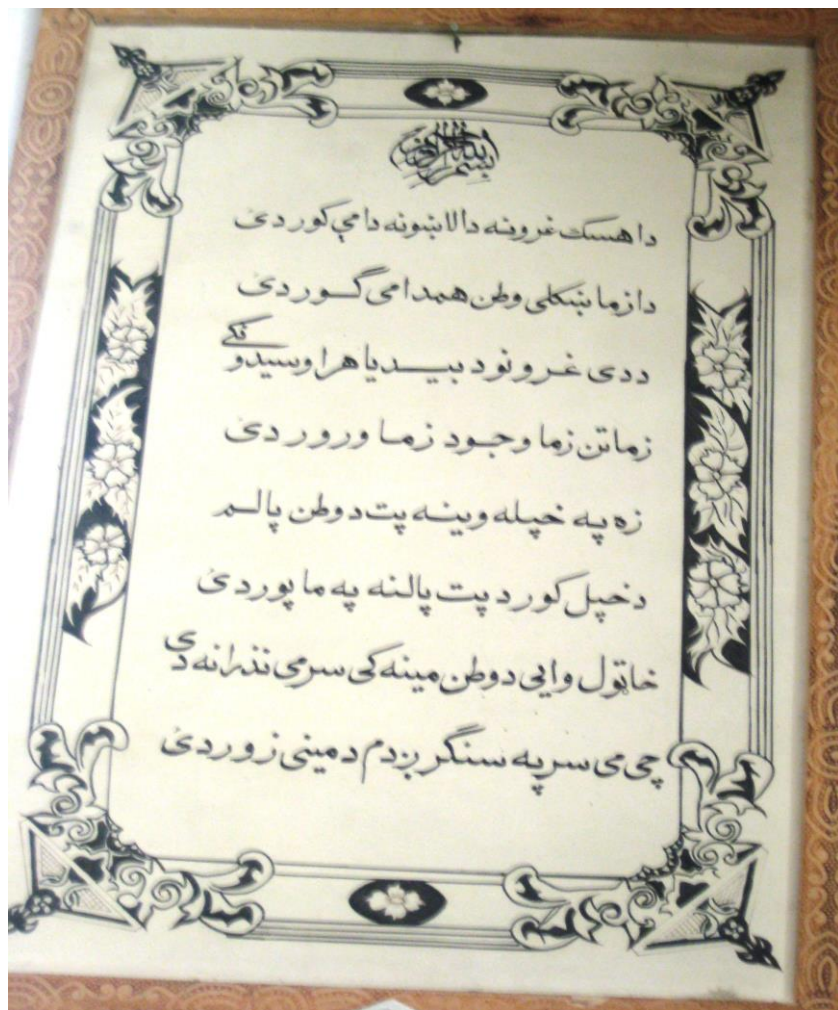 بسم الله الرحمن الرحیم
دا هسک غرونه دا لاښونه دا مې کور دئ
دا زما ښکلی وطن همدا می گـــور دئ
د دی غــرو نو د بیـــدیا هر اوسیدونکے
زما تن زما وجــود زمــا ورور دئ
زه په خپله وینـه پت د وطن پالــم
د خپل کور د پت پالنه په ما پور دئ
خاټول وایی د وطن مینه کی سر می نذرانه دی
چی می سر په سنگر ږدم د مینی زور دئ